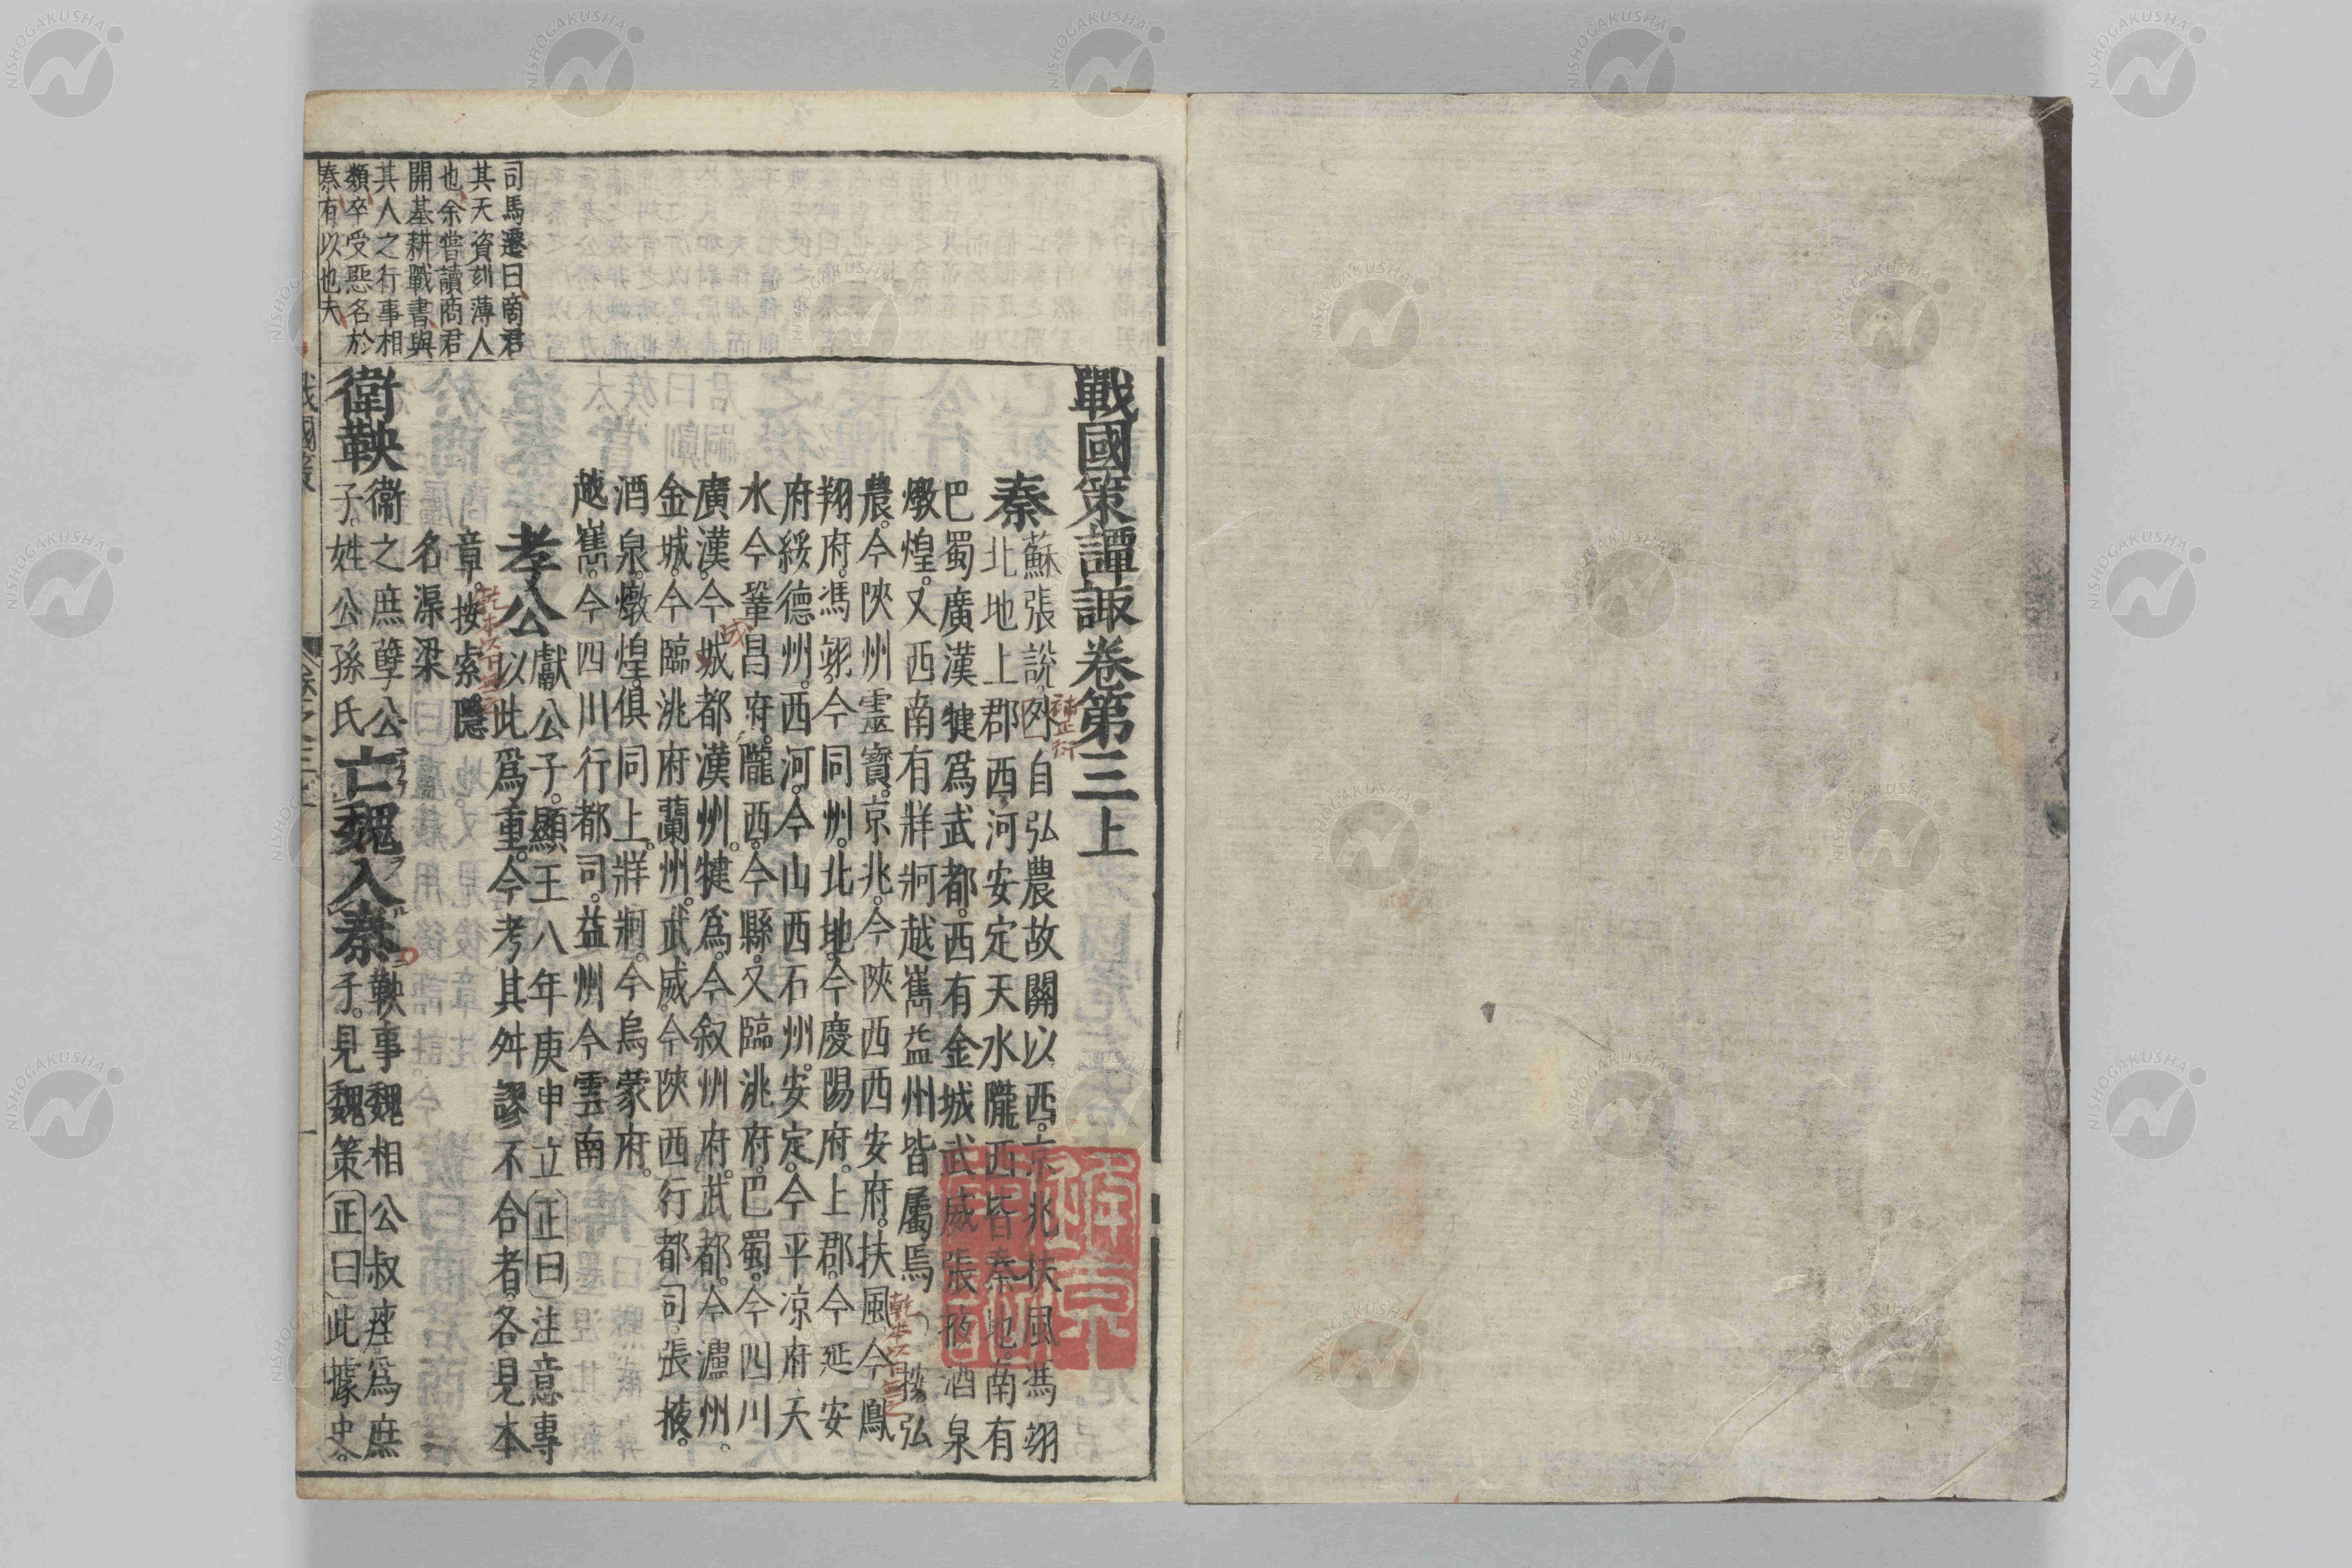 戰國策譚棷卷第三上
秦 蘇張說外自弘農故關以西京兆扶風馮翊
北地上郡西河安定天水隴西皆秦地南有
巴蜀廣漢犍爲武都西有金城武威張掖酒泉
燉煌又西南有牂牁越嶲益州皆屬焉 按弘
農今陝州靈寶京兆今陝西西安府扶風今鳳
翔府馮翊今同州北地今慶陽府上郡今延安
府綏德州西河今山西石州安定今平凉府天
水今鞏昌府隴西今縣又臨洮府巴蜀今四川
廣漢今城都漢州犍爲今叙州府武都今瀘州
金城今臨洮府蘭州武威今陝西行都司張掖
酒泉燉煌俱同上牂牁今烏蒙府
越嶲今四川行都司益州今雲南
孝公 獻公子顯王八年庚申立正曰注意專
以此爲重今考其舛謬不合者各見本
章按索隱
名渠梁
衛鞅 衞之庶孽公
子姓公孫氏
亡魏入秦 鞅事魏相公叔痤爲庶
子見魏策正曰此據史
司馬遷曰商君
其天資刻薄人
也余嘗讀商君
開基耕戰書與
其人之行事相
類卒受惡名於
秦有以也夫
補正衍
成
NISHOGAKUSHA